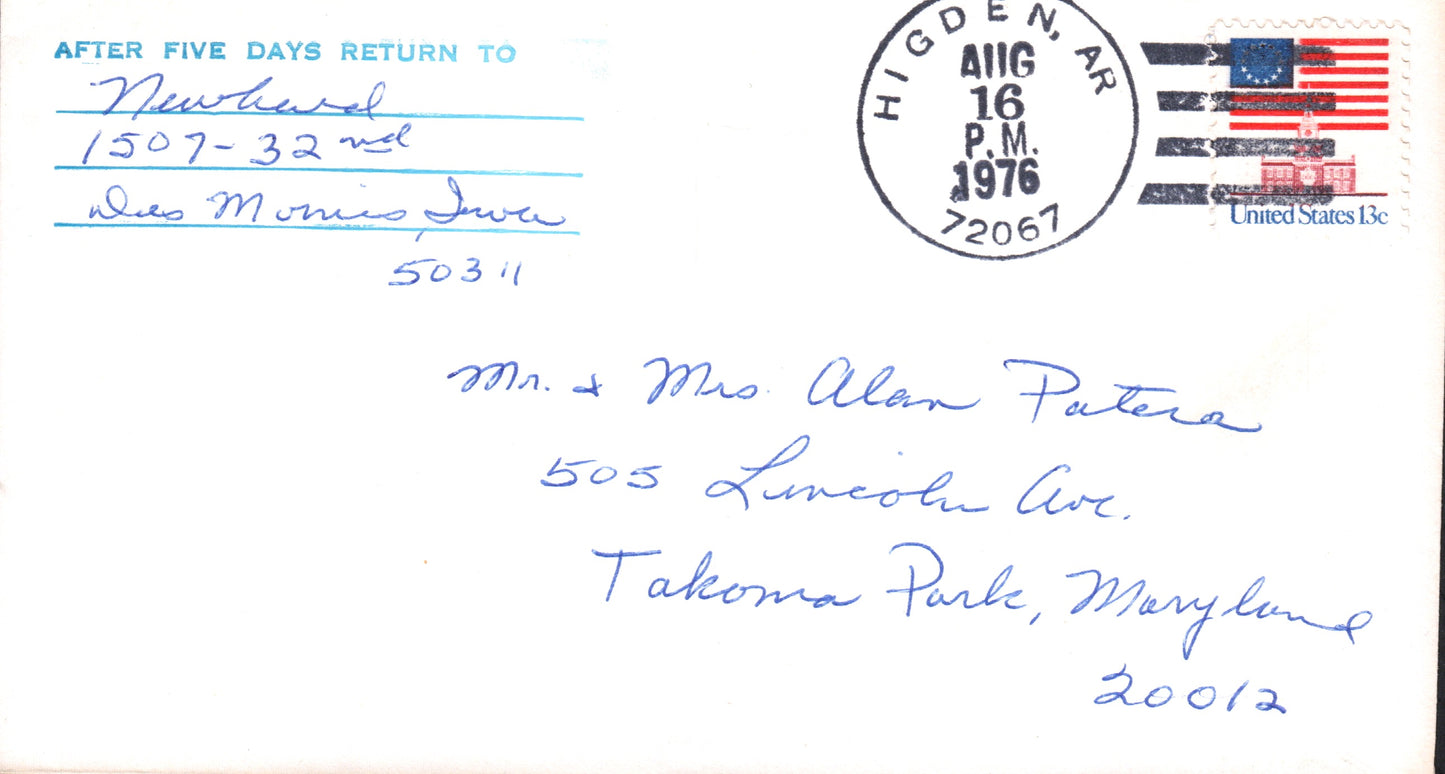 AFTER FIVE DAYS RETURN TO
Newhard
1507-32nd
Des Moines, Iowa
50311
HIGDEN, AR
AUG
16
P.M.
1976
72067
United States 13c
Mr. & Mrs. Alan Patera
505 Lincoln Ave.
Takoma Park, Maryland
20012